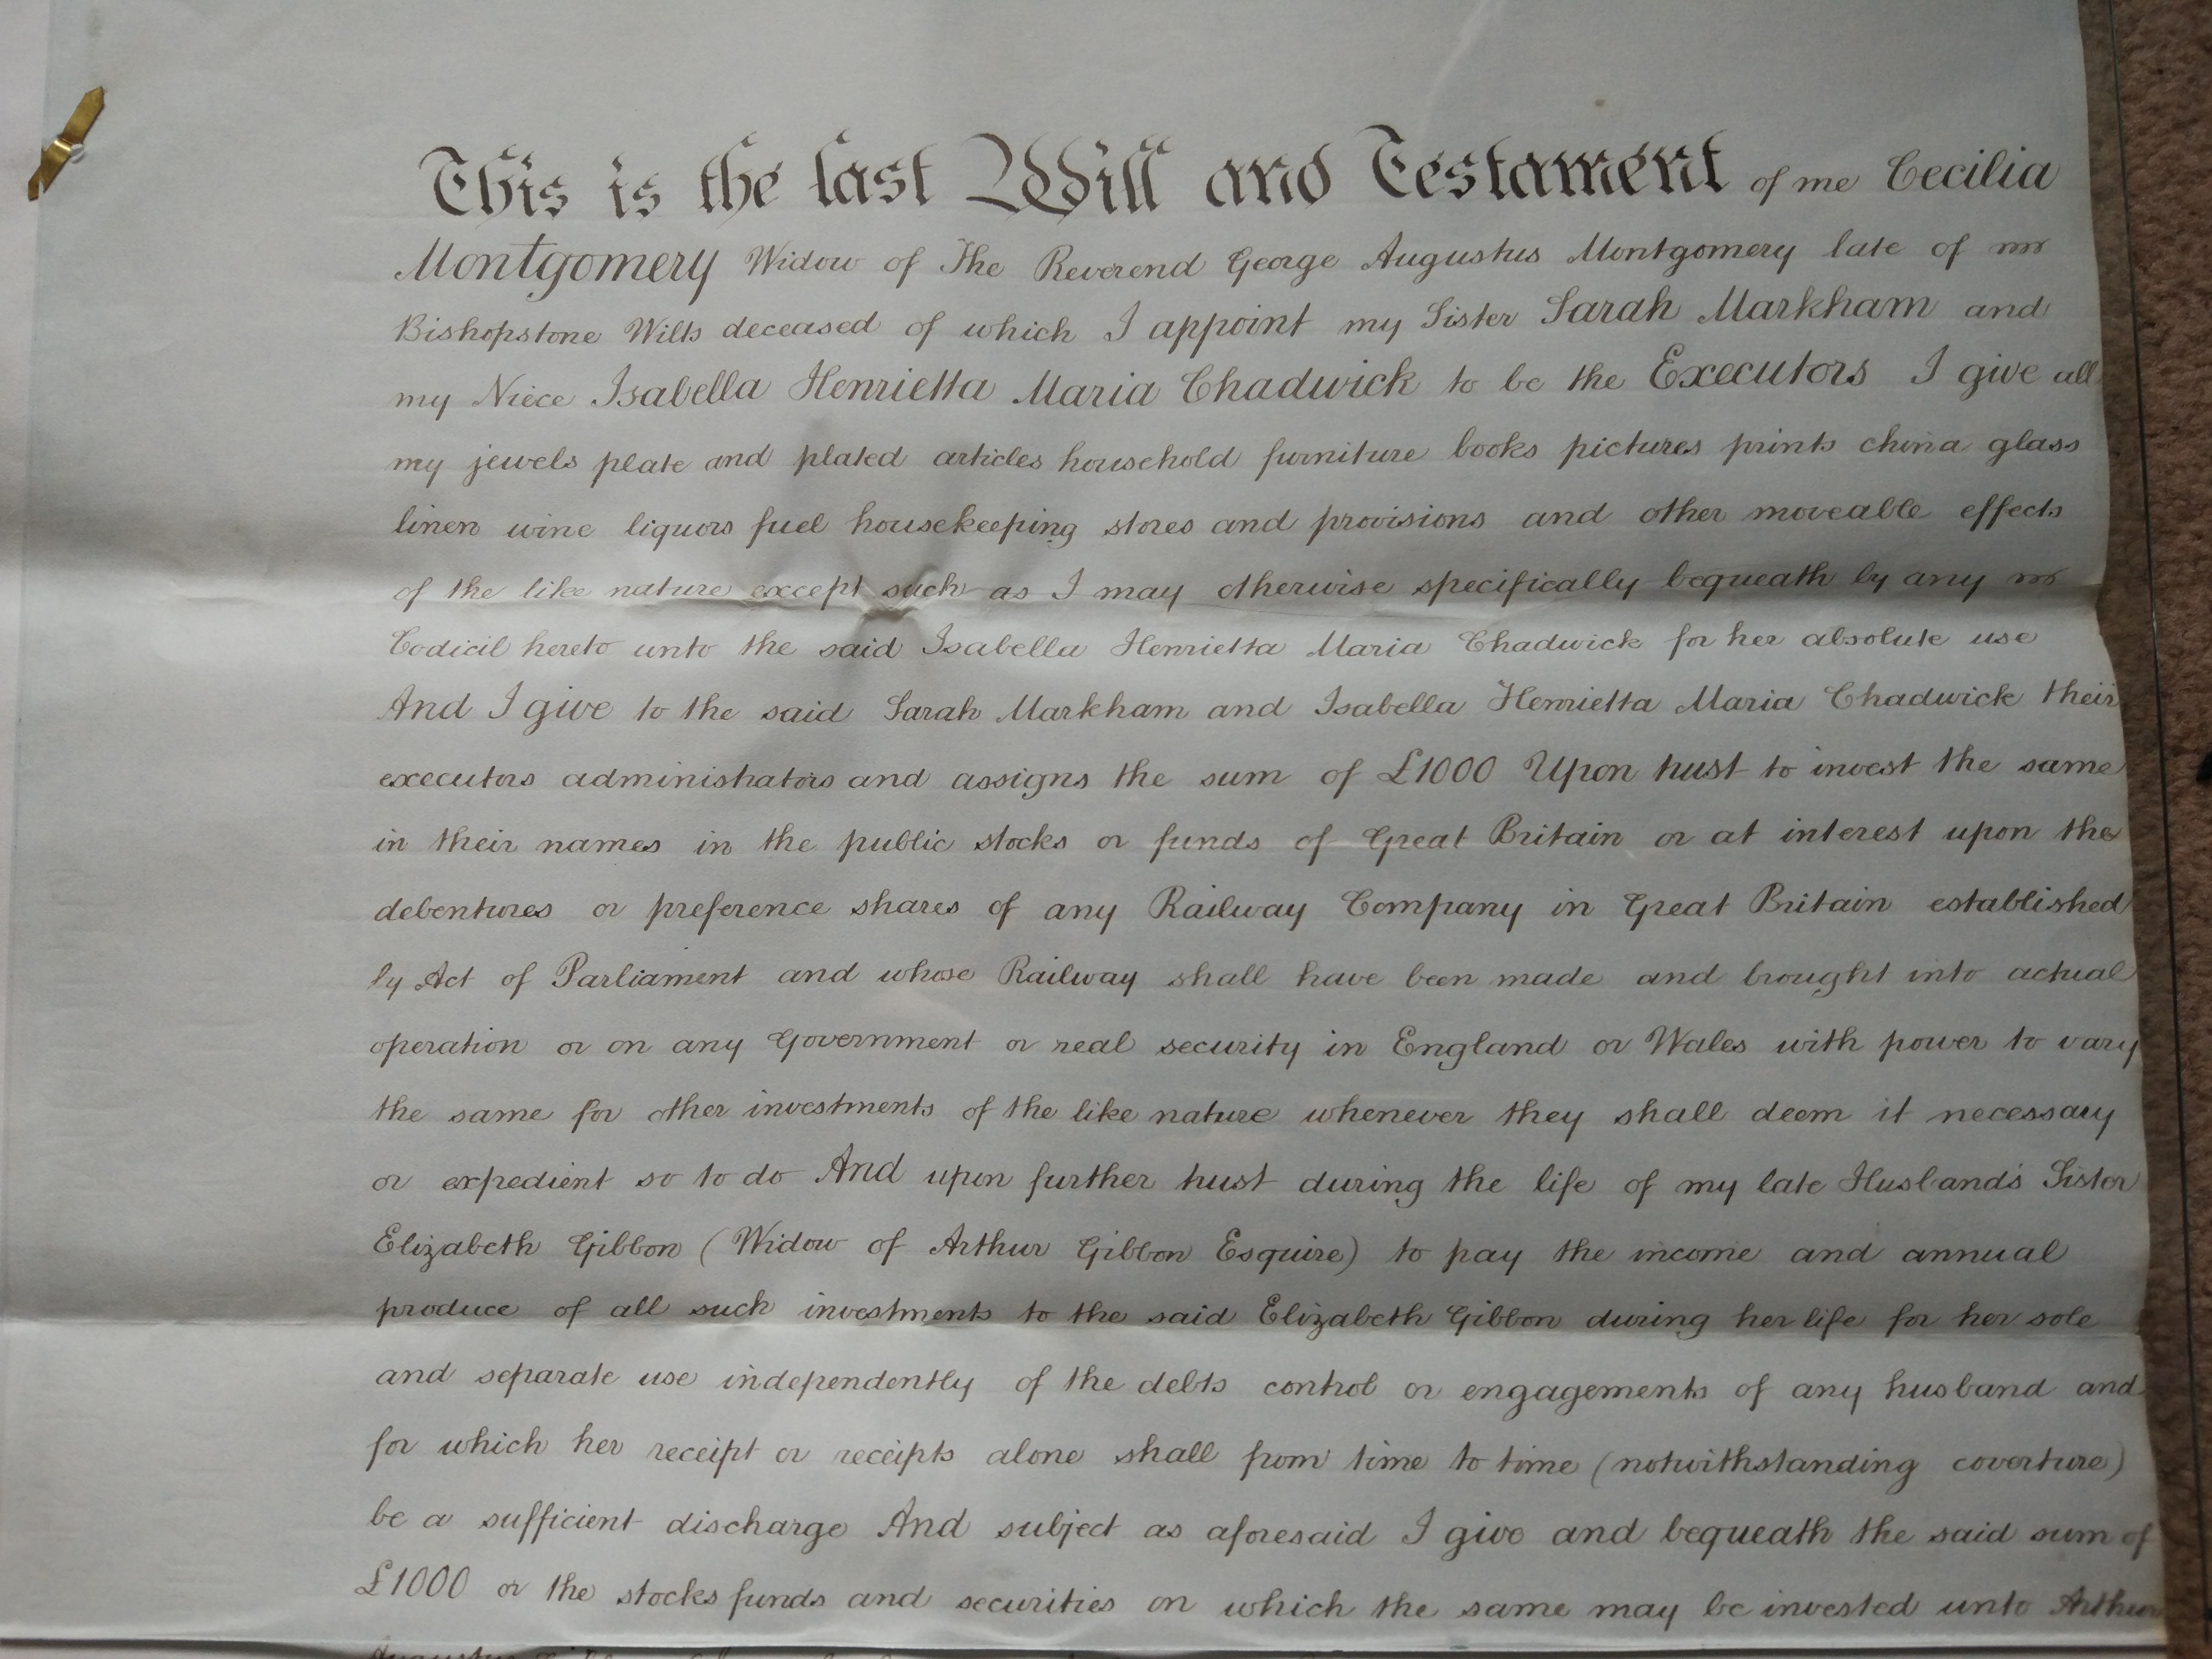 This is the last Will and Testament of me Cecilia
Montgomery Widow of The Reverend George Augustus Montgomery late of
Bishopstone Wilts deceased of which I appoint my Sister Sarah Markham and
my Niece Isabella Henrietta Maria Chadwick to be the Executors I give all
my jewels plate and plated articles household furniture books pictures prints china glass
linen wine liquors fuel housekeeping stores and provisions and other moveable effects
of the like nature except such as I may otherwise specifically bequeath by any
Codicil hereto unto the said Isabella Henrietta Maria Chadwick for her absolute use
And I give to the said Sarah Markham and Isabella Henrietta Maria Chadwick their
executors administrators and assigns the sum of £1000 Upon trust to invest the same
in their names in the public stocks or funds of Great Britain or at interest upon the
debentures or preference shares of any Railway Company in Great Britain established
by Act of Parliament and whose Railway shall have been made and brought into actual
operation or on any Government or real security in England or Wales with power to vary
the same for other investments of the like nature whenever they shall deem it necessary
or expedient so to do And upon further trust during the life of my late Husband's Sister
Elizabeth Gibbon (Widow of Arthur Gibbon Esquire) to pay the income and annual
produce of all such investments to the said Elizabeth Gibbon during her life for her sole
and separate use independently of the debts control or engagements of any husband and
for which her receipt or receipts alone shall from time to time (notwithstanding coverture)
be a sufficient discharge And subject as aforesaid I give and bequeath the said sum of
£1000 or the stocks funds and securities on which the same may be invested unto Arthur